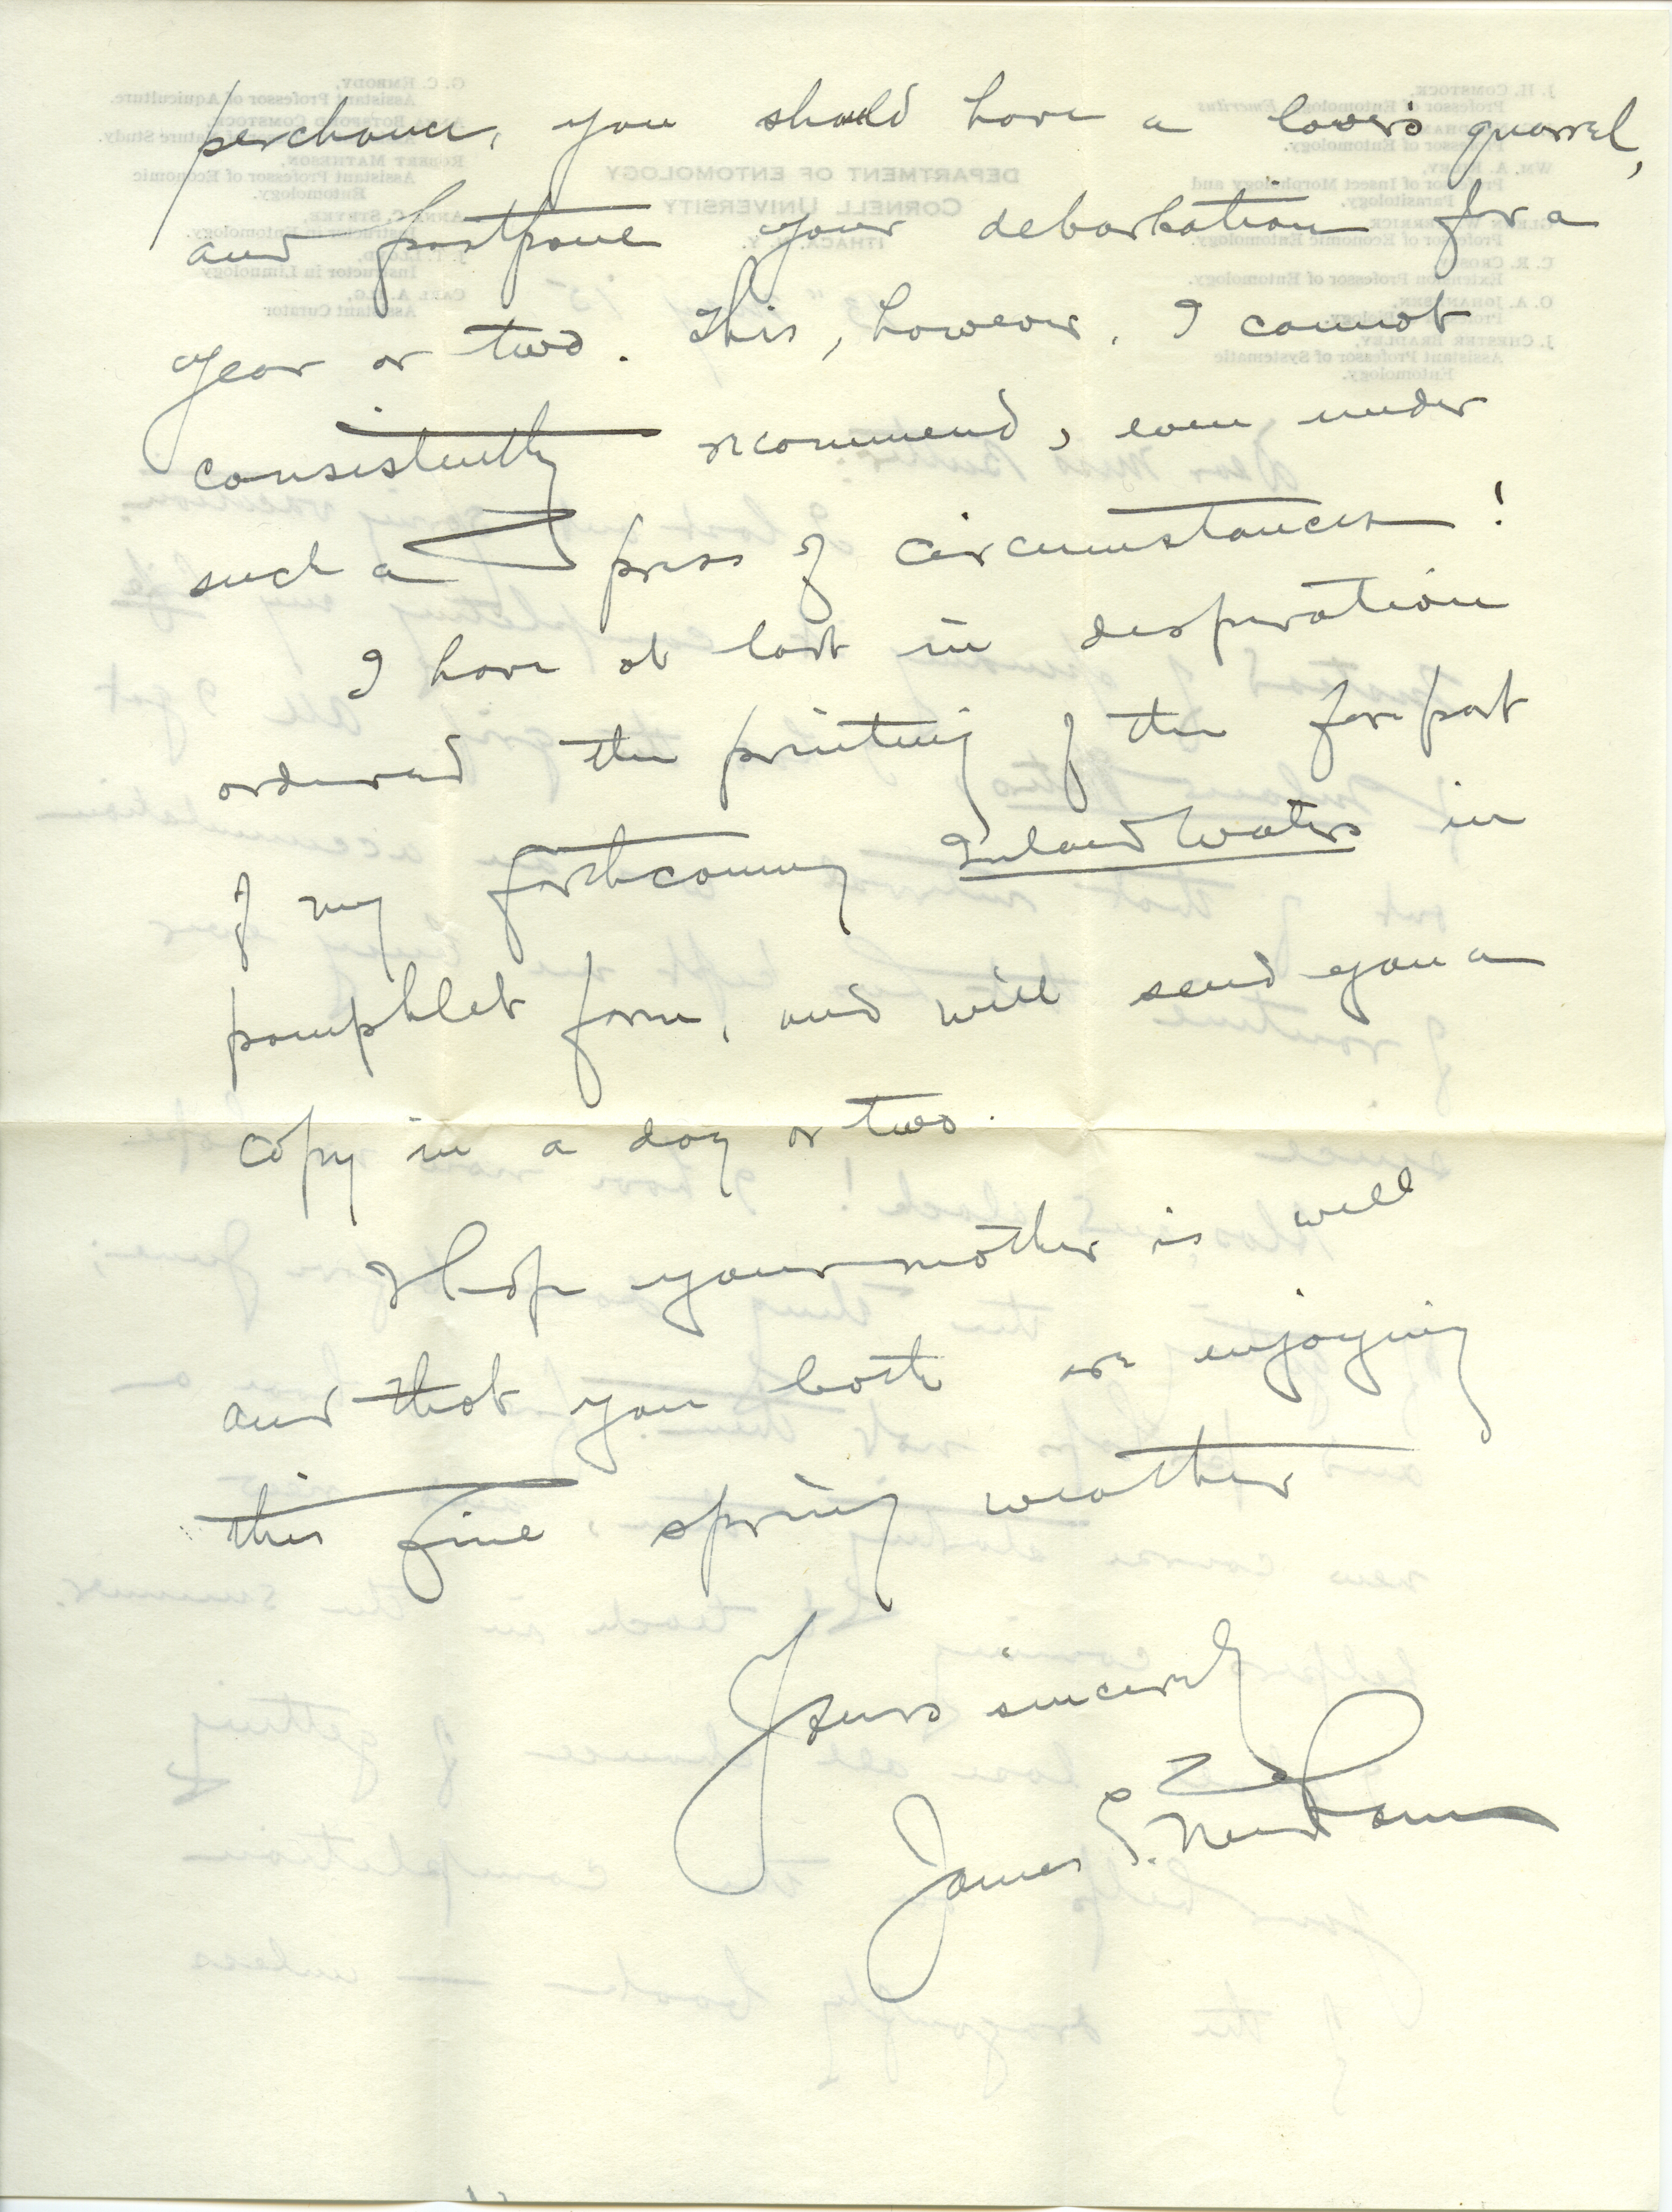 perchance, you should have a lover's quarrel,
and postpone your debarkation for a
year or two. This, however, I cannot
consistently recommend, even under
such a press of circumstances!
I have at last in desperation
ordered the printing of the forepart
of my forthcoming Inland Waters in
pamphlet form, and will send you a
copy in a day or two.
I hope your mother is well
and that you both are enjoying
this fine spring weather
Yours sincerely
James G. Needham